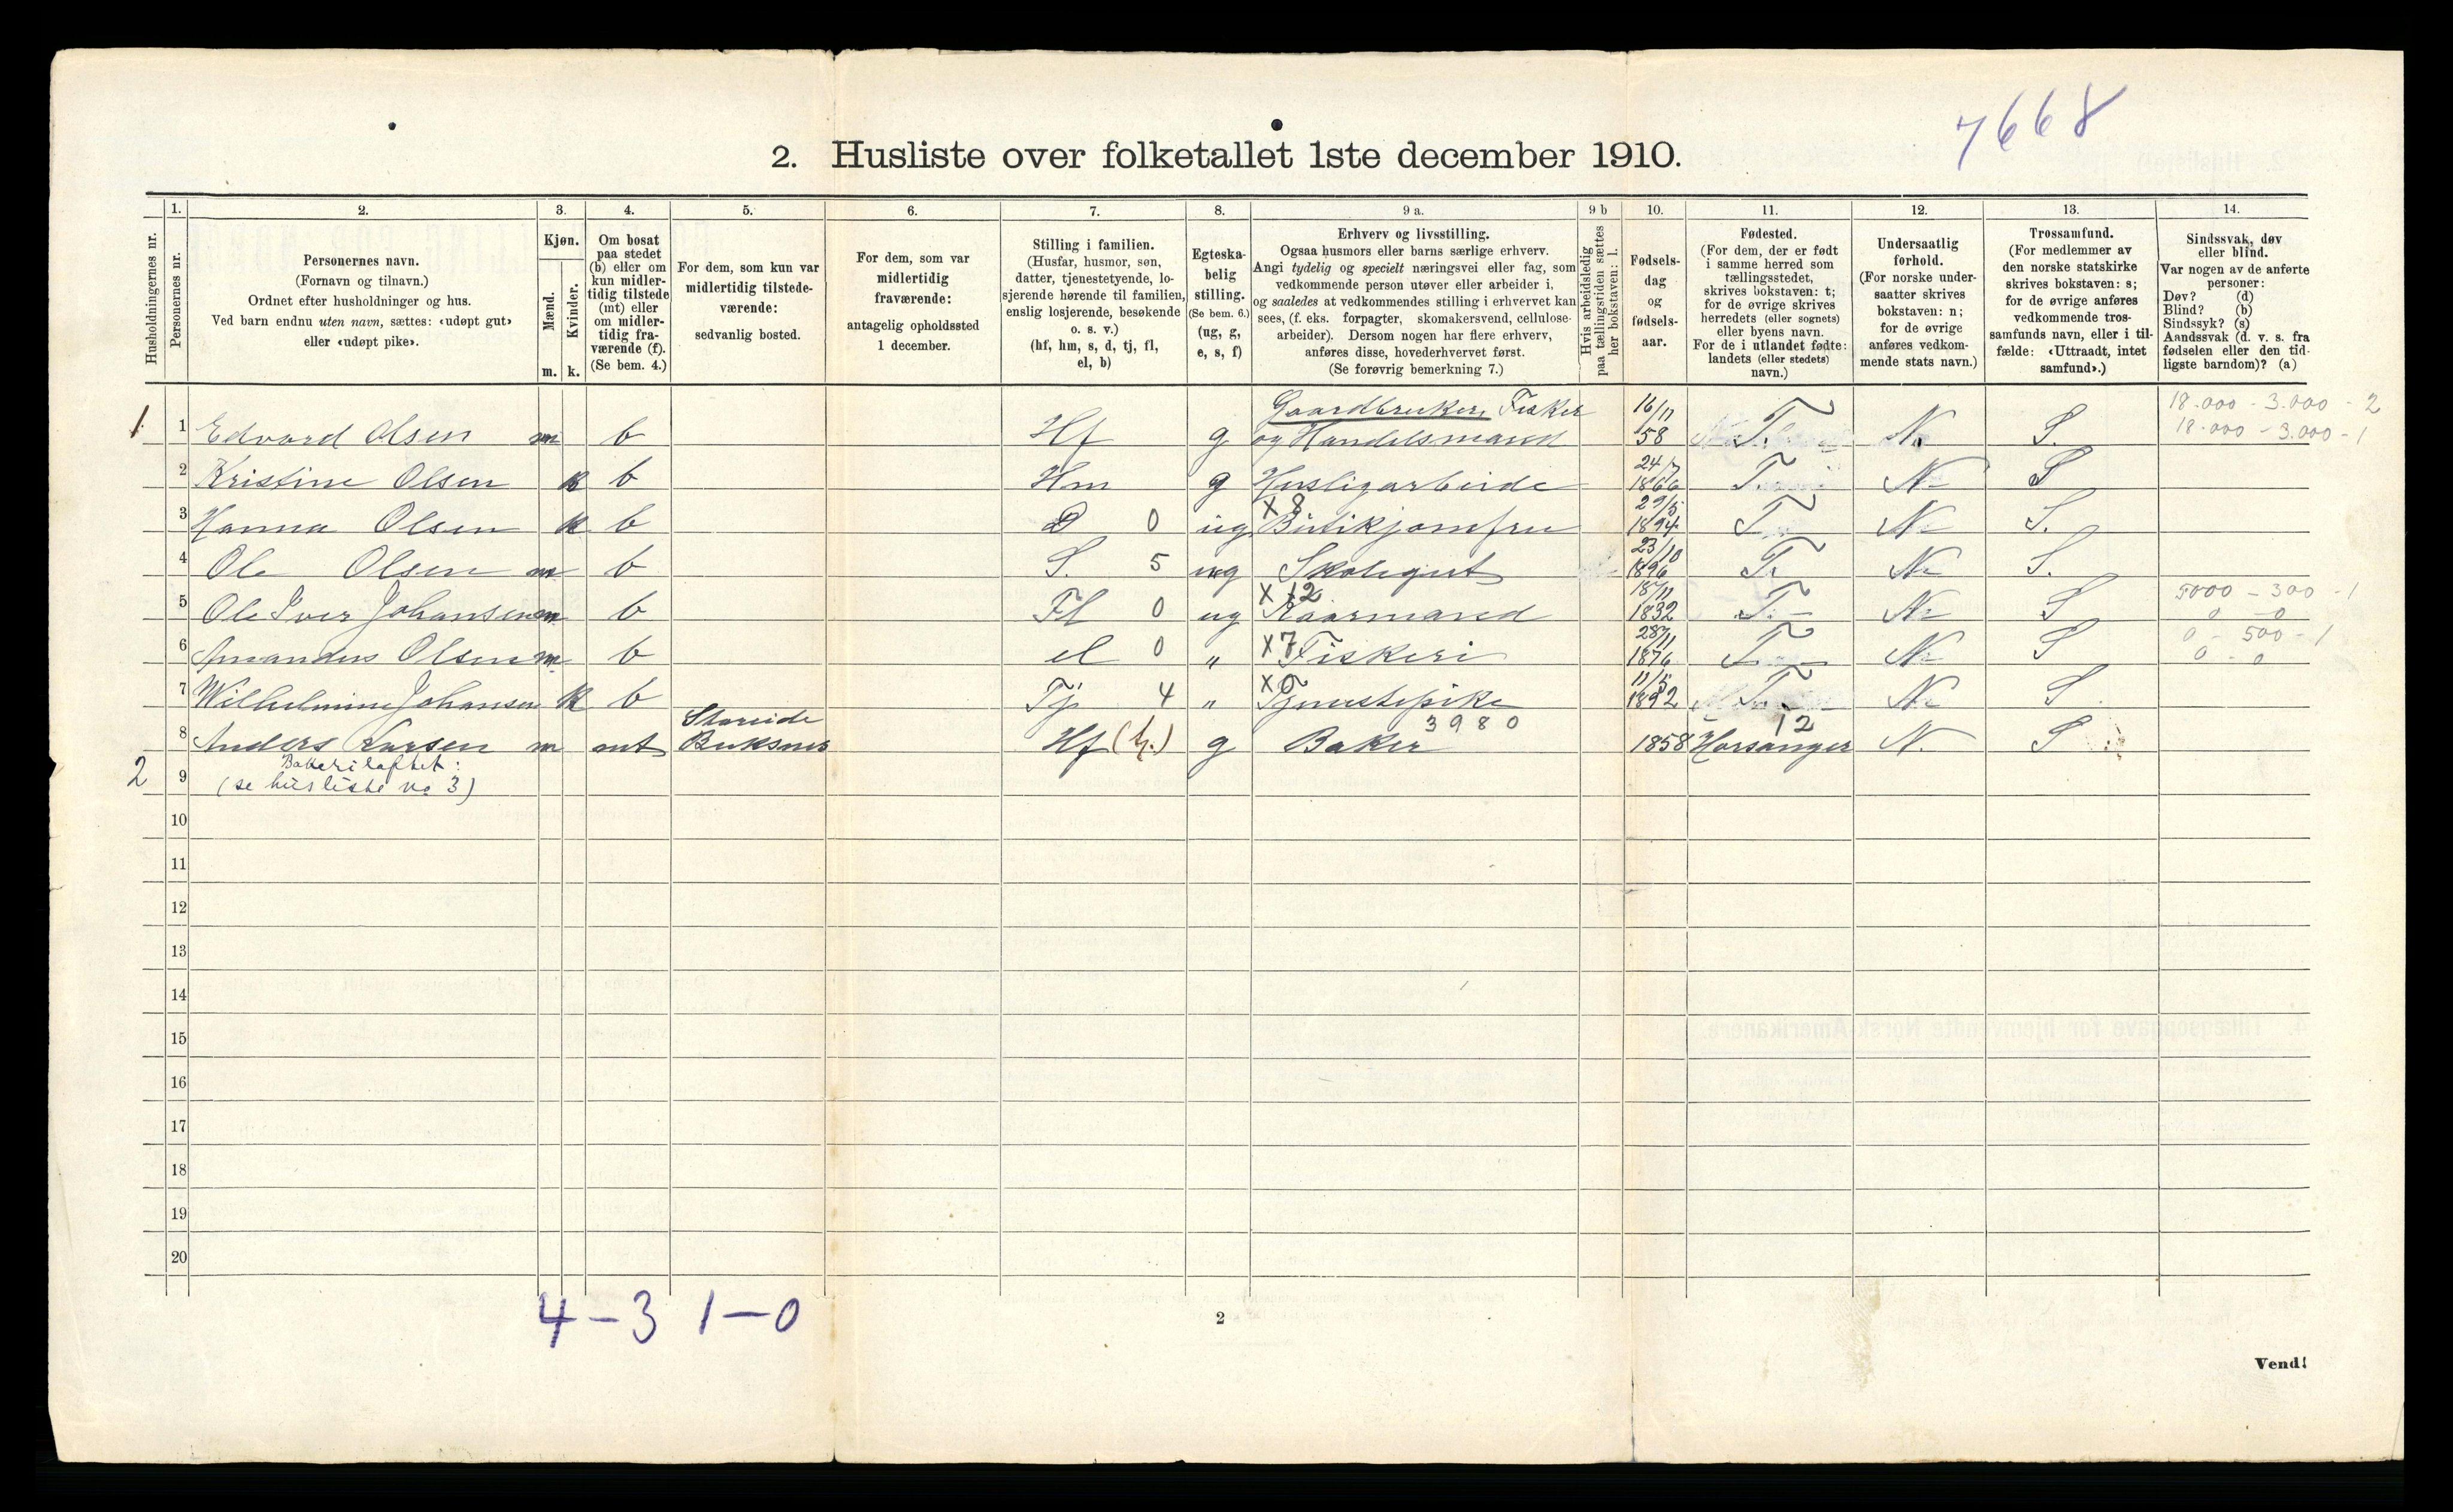 7668
2. Husliste over folketallet 1ste december 1910.
1. 2. 3. 4. 5. 6. 7. 8. 9 a. 9 b 10. 11. 12. 13. 14.
Husholdningernes nr.
Personernes nr.
Personernes navn.
(Fornavn og tilnavn.)
Ordnet efter husholdninger og hus.
Ved barn endnu uten navn, sættes: «udøpt gut»
eller «udøpt pike».
Kjøn.
Mænd.
Kvinder.
m. k.
Om bosat
paa stedet
(b) eller om
kun midler-
tidig tilstede
(mt) eller
om midler-
tidig fra-
værende (f).
(Se bem. 4.)
For dem, som kun var
midlertidig tilstede-
værende:
sedvanlig bosted.
For dem, som var
midlertidig
fraværende:
antagelig opholdssted
1 december.
Stilling i familien.
(Husfar, husmor, søn,
datter, tjenestetyende, lo-
sjerende hørende til familien,
enslig losjerende, besøkende
o. s. v.)
(hf, hm, s, d, tj, fl,
el, b)
Egteska-
belig
stilling.
(Se bem. 6.)
(ug, g,
e, s, f)
Erhverv og livsstilling.
Ogsaa husmors eller barns særlige erhverv.
Angi tydelig og specielt næringsvei eller fag, som
vedkommende person utøver eller arbeider i,
og saaledes at vedkommendes stilling i erhvervet kan
sees, (f. eks. forpagter, skomakersvend, cellulose-
arbeider). Dersom nogen har flere erhverv,
anføres disse, hovederhvervet først.
(Se forøvrig bemerkning 7.)
Hvis arbeidsledig
paa tællingstiden sættes
her bokstaven: l.
Fødsels-
dag
og
fødsels-
aar.
Fødested.
(For dem, der er født
i samme herred som
tællingsstedet,
skrives bokstaven: t;
for de øvrige skrives
herredets (eller sognets)
eller byens navn.
For de i utlandet fødte:
landets (eller stedets)
navn.)
Undersaatlig
forhold.
(For norske under-
saatter skrives
bokstaven: n;
for de øvrige
anføres vedkom-
mende stats navn.)
Trossamfund.
(For medlemmer av
den norske statskirke
skrives bokstaven: s;
for de øvrige anføres
vedkommende tros-
samfunds navn, eller i til-
fælde: «Uttraadt, intet
samfund».)
Sindssvak, døv
eller blind.
Var nogen av de anførte
personer:
Døv? (d)
Blind? (b)
Sindssyk? (s)
Aandssvak (d. v. s. fra
fødselen eller den tid-
ligste barndom)? (a)
Gaardbruker, Fisker 16/11 18.000 - 3.000 - 2
1 1 Edvard Olsen m b Hf g og Handelsmand 58 T. N. S. 18.000 - 3.000 - 1
24/7
2 Kristine Olsen k b Hm g Husligarbeide 1866 T N S
X 8 29/5
3 Hanna Olsen k b D 0 ug Butikjomfru 1894 T N S.
23/10
4 Ole Olsen m b S. 5 ug Skolegut 1896 T. N S.
X 12 18/11 5000 - 300 - 1
5 Ole Iver Johansen m b Fl 0 ug Kaarmand 1832 T. N S 0 - 0
28/11 0 - 500 - 1
6 Amandus Olsen m b el 0 „ X7 Fiskeri 1876 T N S 0 - 0
X 0 11/5
7 Wilhelmine Johansen k b Tj 4 „ Tjenestepike 1892 T N S
Storeide 3980 12
8 Anders Larsen m mt Buksnes Hf (b.) g Baker 1858 Horsanger N. S
Bakeriloftet:
2 9 (se husliste no 3)
10
11
12
13
14
15
16
17
18
19
20
4 - 3 1 - 0
2
Vend!